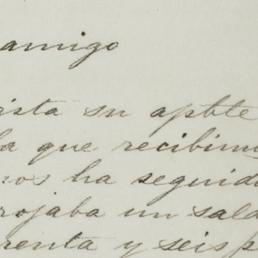 amigo
ista su apbte
la que recibim
nos ha seguid
rojaba un sald
renta y seis p